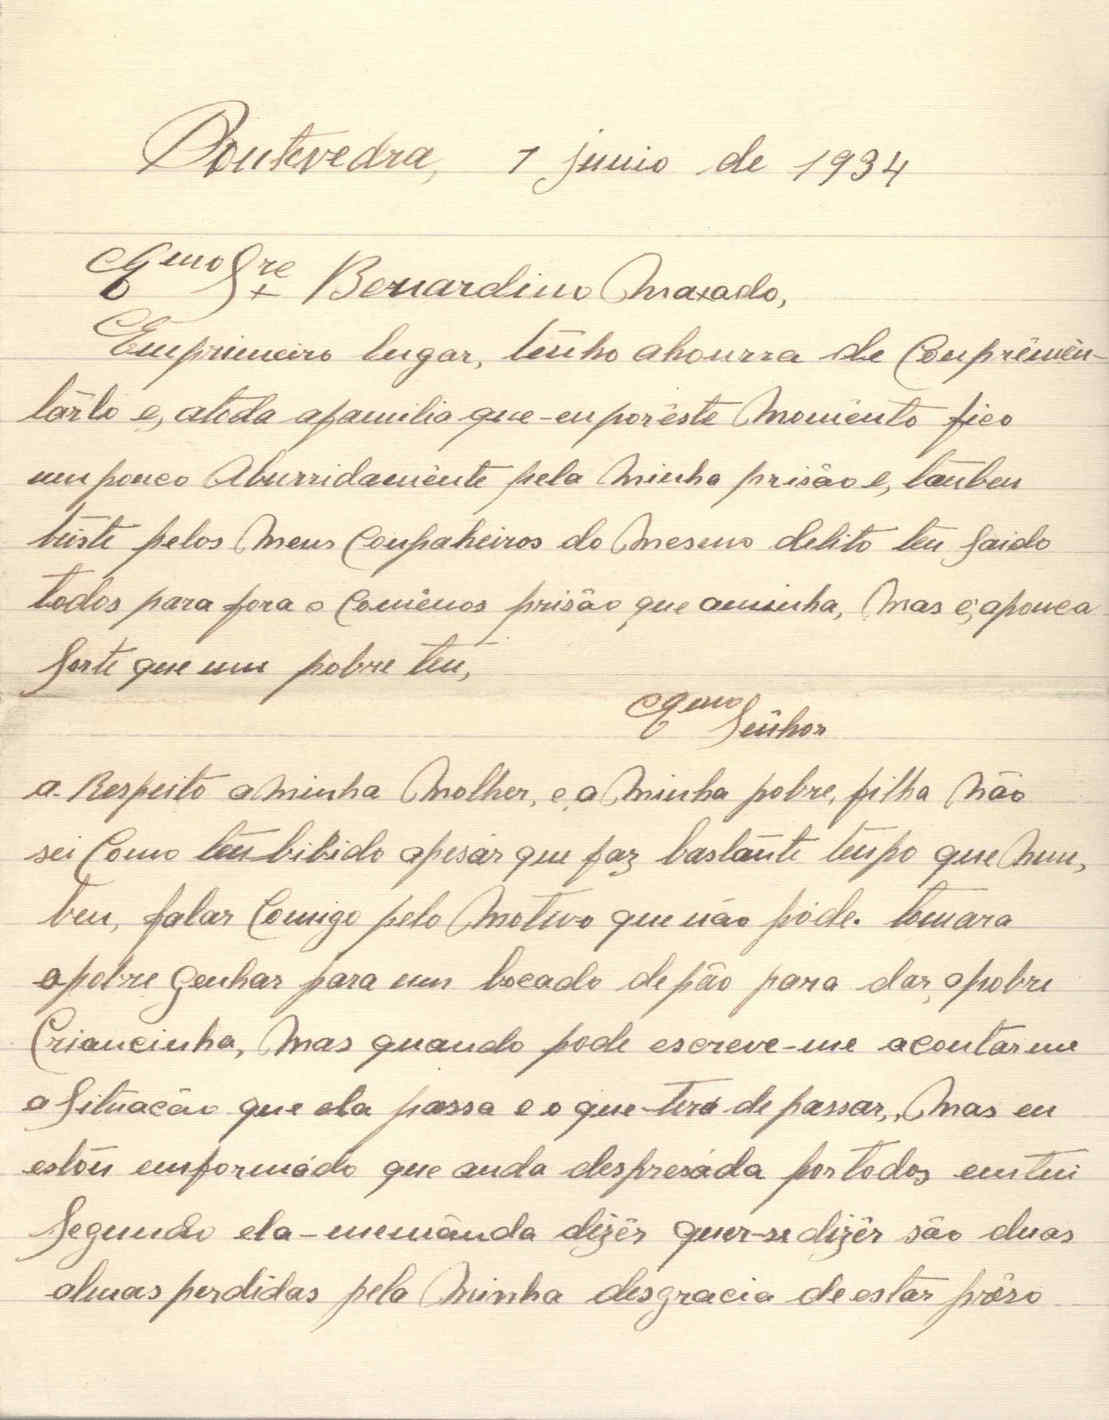 Pontevedra, 7 junio de 1934
Exmo Sre Bernardino Maxado,
Emprimeiro lugar, tênho ahourra de Comprêmên-
târlo e, atoda afamilia que-eu porêste Momênto fico
um pouco Aburridamênte pela Minha prisão e, tâmben
triste pelos Meus Conpaheiros do Mesmo delito ten Saido
todos para fora o Comênos prisão que aminha, Mas é, apouca
Sorte que um pobre ten,
Exmo Senhor
a. Respeito a minha Molher, e, a Minha pobre, filha Não
sei Como tên bibido apesár que faz bastânte têmpo que Nun,
ben, falar Comigo pelo Motivo que não póde. tomara
a pobre Genhar para um bocado de pão para dar, apobre
Criancinha, Mas quando pode escreve-me acontarme
a Situação que ela passa e o que-terá de passar,, Mas eu
estóu emformádo que anda despresáda por todos emtui
Segundo ela-memânda dizêr quer-se dizêr são duas
almas perdidas pela Minha desgracia de estar prêso